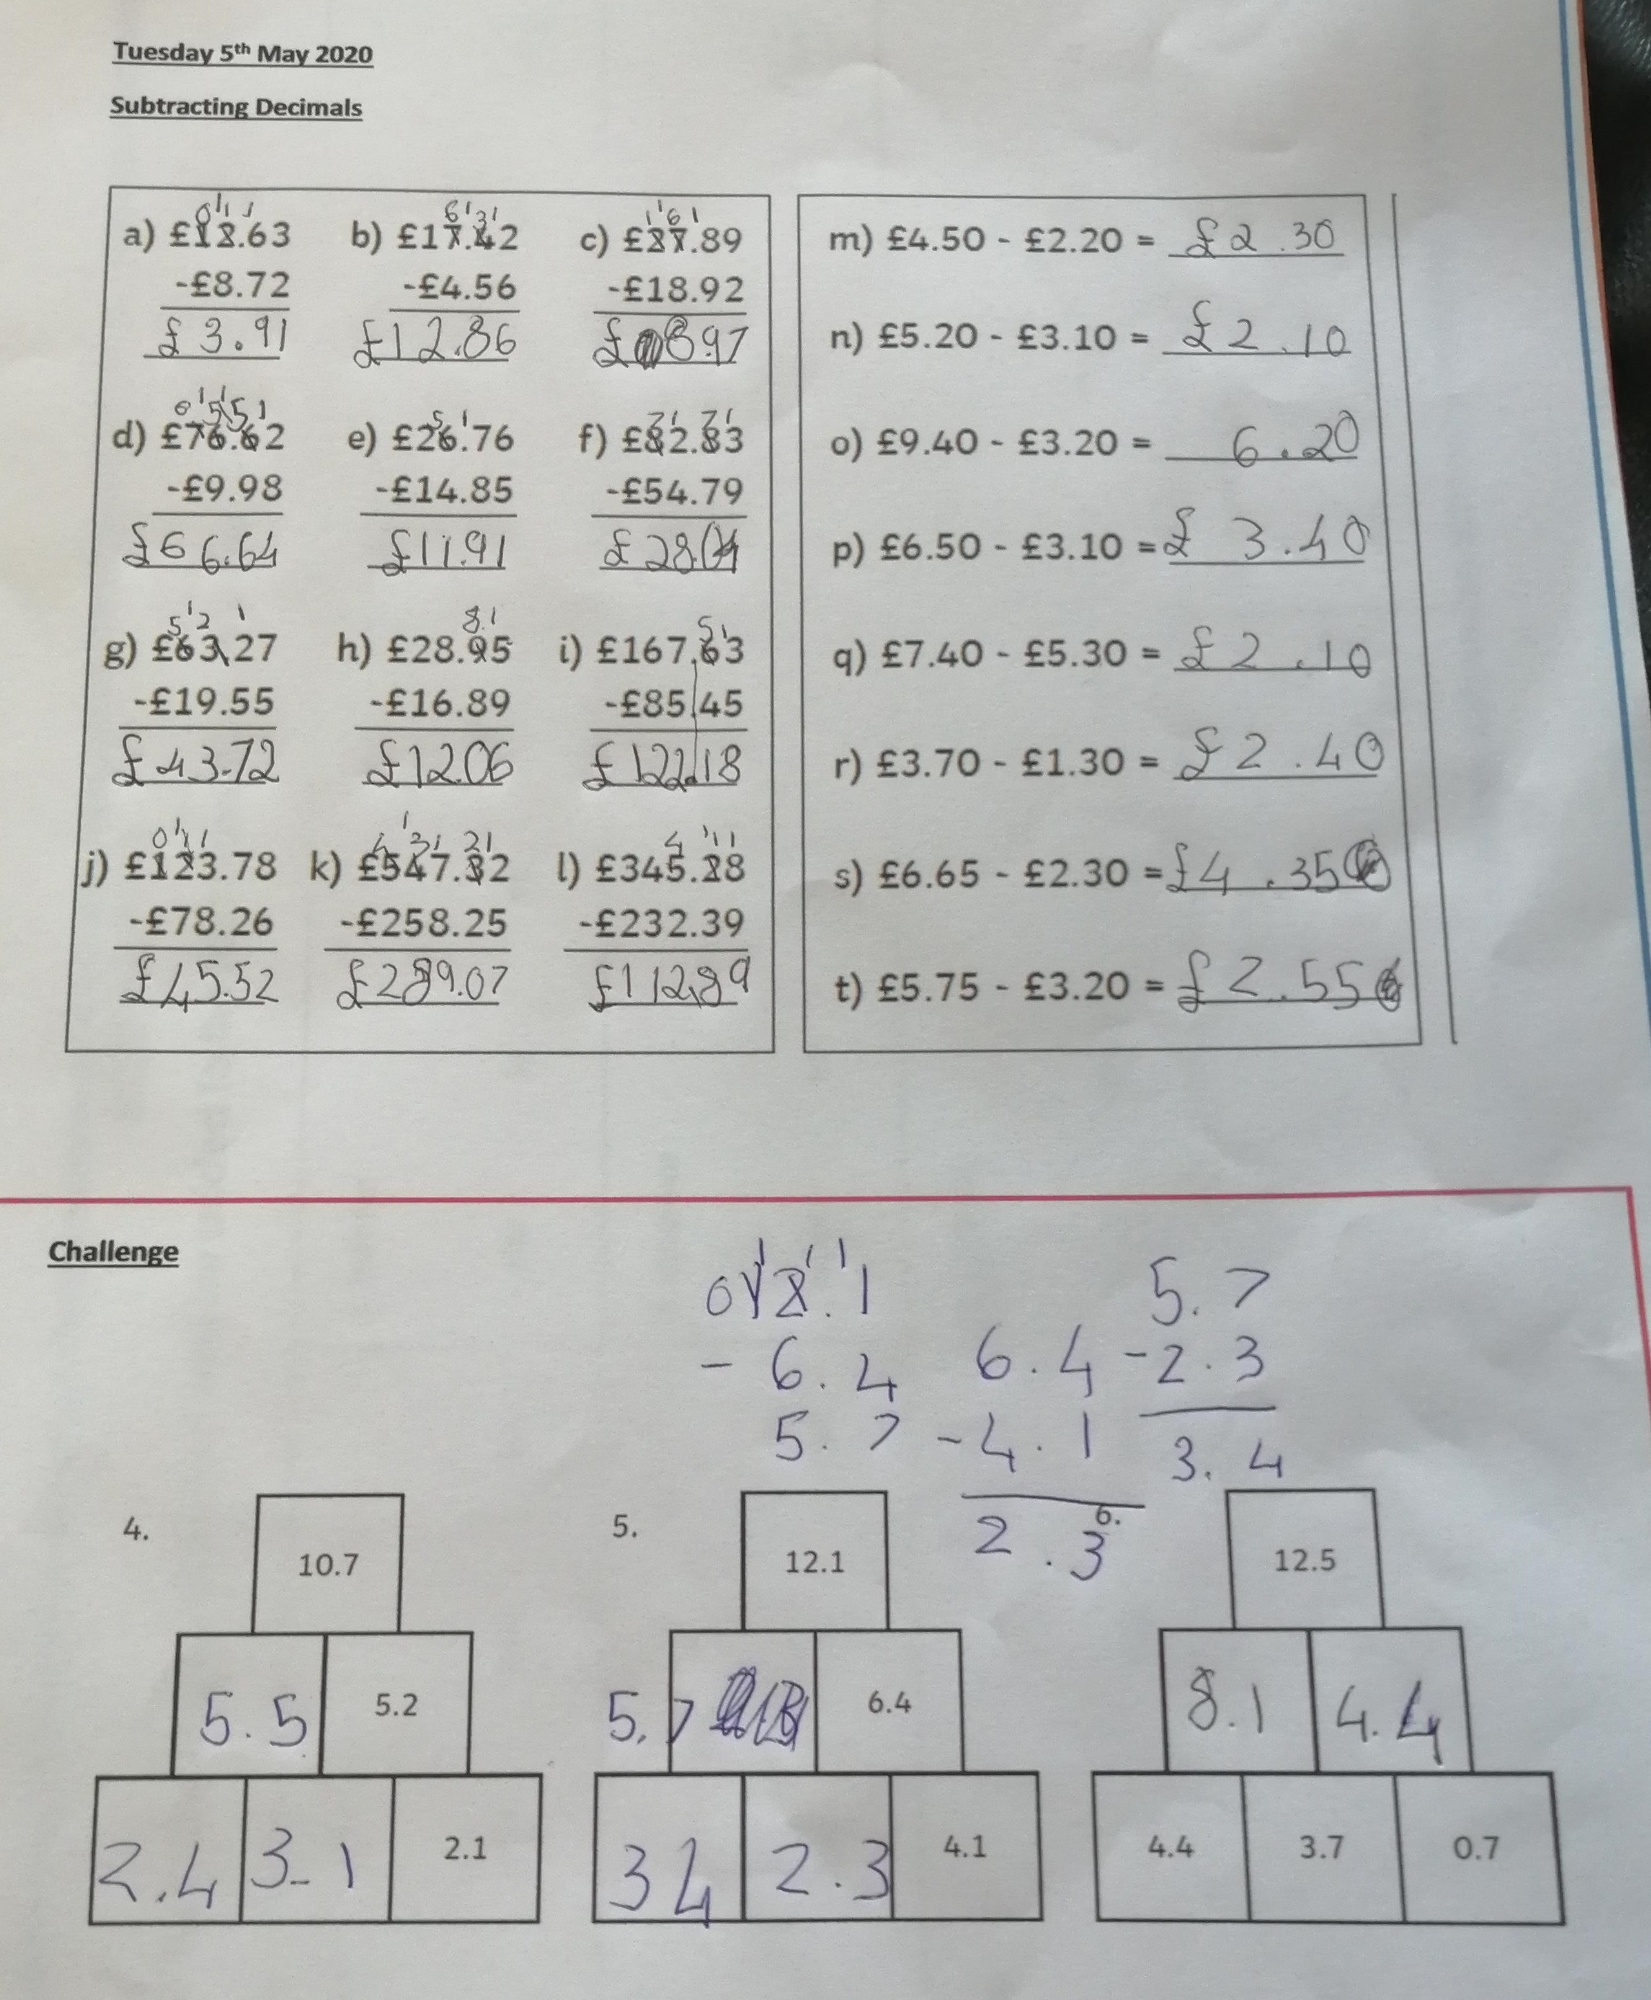 Tuesday 5th May 2020
Subtracting Decimals
a) £12.63 b) £17.42 c) £27.89
-£8.72 -£4.56 -£18.92
£3.91 £12.86 £8.97
d) £76.62 e) £26.76 f) £82.83
-£9.98 -£14.85 -£54.79
£66.64 £11.91 £28.04
g) £63.27 h) £28.95 i) £167.63
-£19.55 -£16.89 -£85.45
£43.72 £12.06 £122.18
j) £123.78 k) £547.32 l) £345.28
-£78.26 -£258.25 -£232.39
£45.52 £289.07 £112.89
m) £4.50 - £2.20 = £2.30
n) £5.20 - £3.10 = £2.10
o) £9.40 - £3.20 = 6.20
p) £6.50 - £3.10 = £3.40
q) £7.40 - £5.30 = £2.10
r) £3.70 - £1.30 = £2.40
s) £6.65 - £2.30 = £4.35
t) £5.75 - £3.20 = £2.55
Challenge
12.1
- 6.4
5.7
6.4
-4.1
2.3
5.7
-2.3
3.4
4.
10.7
5.5 5.2
2.4 3.1 2.1
5.
12.1
5.7 6.4
34 2.3 4.1
6.
12.5
8.1 4.4
4.4 3.7 0.7